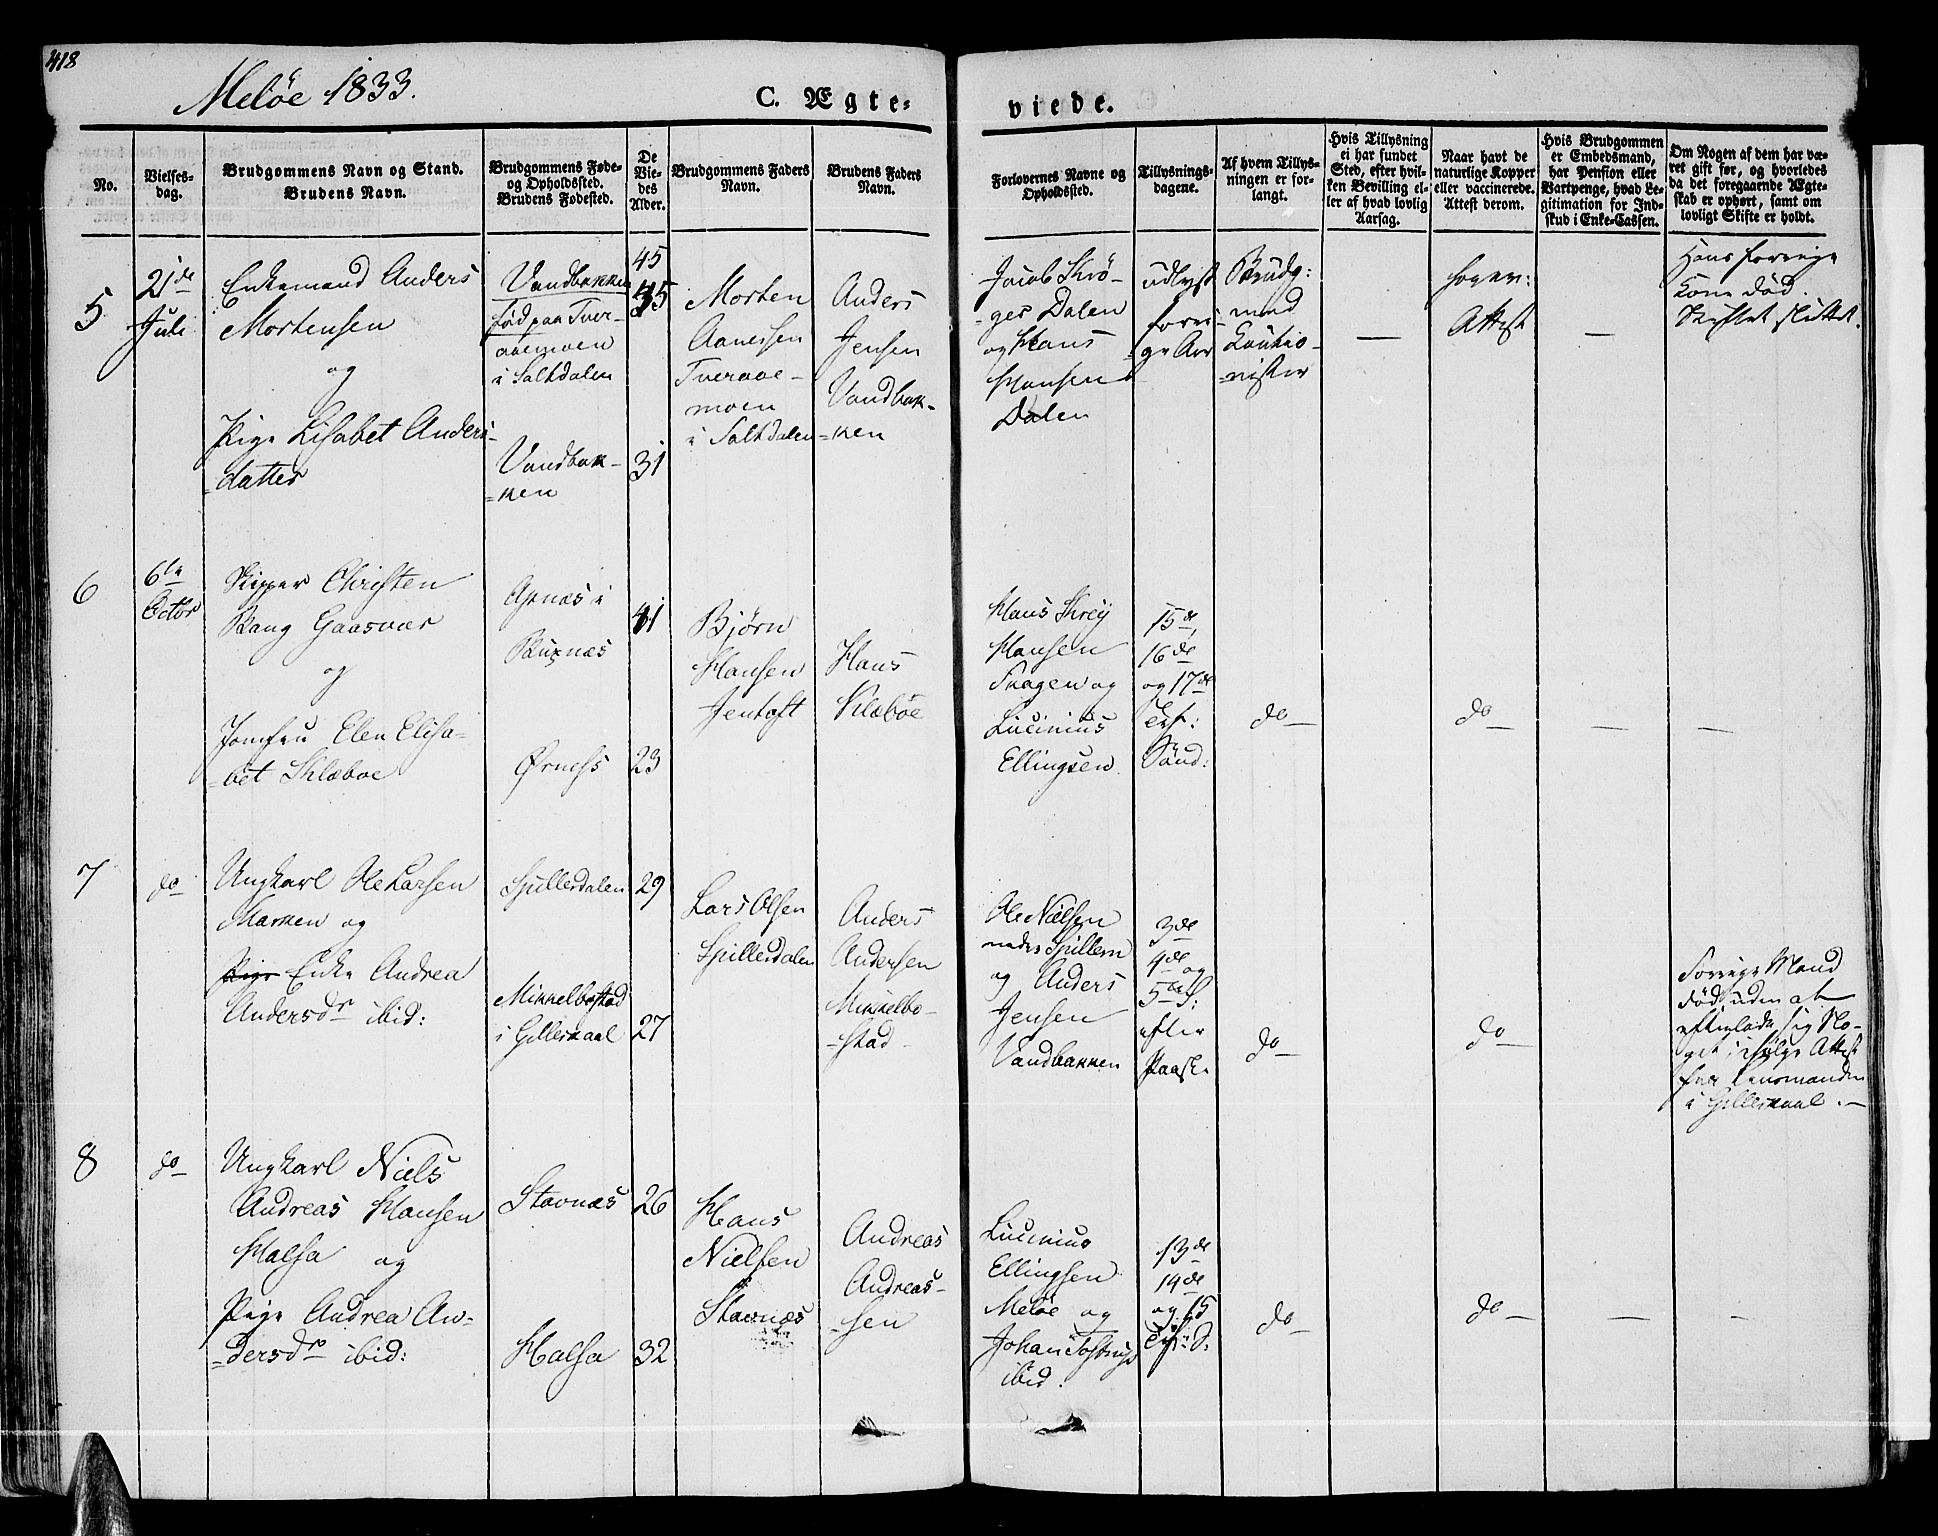 418
Meløe 1833.
C. Ægte-
viede.
No.
Vielses-
dag.
Brudgommens Navn og Stand.
Brudens Navn.
Brudgommens Føde-
og Opholdssted.
Brudens Fødested.
De
Vie-
des
Alder.
Brudgommens Faders
Navn.
Brudens Faders
Navn.
Forlovernes Navne og
Opholdssted.
Tillysnings-
dagene.
Af hvem Tillys-
ningen er for-
langt.
Hvis Tillysning
ei har fundet
Sted, efter hvil-
ken Bevilling el-
ler af hvad lovlig
Aarsag.
Naar havt de
naturlige Kopper
eller vaccinerede.
Attest derom.
Hvis Brudgommen
er Embedsmand,
har Pension eller
Vartpenge, hvad Le-
gitimation for Ind-
skud i Enke-Cassen.
Om Nogen af dem har væ-
ret gift før, og hvorledes
da det foregaaende Ægte-
skab er ophørt, samt om
lovligt Skifte er holdt.
5
21de
Juli
Enkemand Anders
Mortensen
og
Pige Lisabet Anders-
=datter
Vandbakken
født paa Tver-
aaemoen
i Saltdalen
Vandbak-
=ken
45
45
31
Morten
Aanessen
Tveraae-
moen
i Saltdalen
Anders
Jensen
Vandbak-
=ken
Jacob Skrö-
=ges Dalen
og Hans
Hansen
Dalen
udlyst
forri-
ge Aar
Brudg:
med
Kautio-
=nister
—
Attest
—
Hans forrige
Kone død.
Skiftet sluttet.
6
6te
Octbr
Skipper Christen
Bang Gaasvær
og
Jomfru Elen Elisa-
=bet Sklæboe
Agnæs i
Buxnæs
Ørness
41
23
Bjørn
Hansen
Jentoft
Hans
Klæböe
Hans Skrey
Hansen
Skagen og
Lucinius
Ellingsen
15de
16de
og 17de
Sönd:
do
do
—
—
7
do
Ungkarl Ole Larsen
Marken og
Pige Enke Andrea
Andersdr ibid:
Spillerdalen
Mikkelbostad
i Gilleskaal
29
27
Lars Olsen
Spillerdalen
Anders
Andersen
Mikkelbo-
=stad
Ole Nielsen
nedre Spillern
og Anders
Jensen
Vandbakken
3de
4de og
5te S:
efter
Paaske
do
do
Forrige Mand
død uden at
efterlade sig No-
get, ifølge Attest
fra Lensmanden
i Gilleskaal.
8
do
Ungkarl Niels
Andreas Hansen
Halsa og
Pige Andrea An-
=dersdr ibid:
Stavnæs
Halsa
26
32
Hans
Nielsen
Stavnæs
Andreas
Andreas-
=sen
Lucinius
Ellingsen
Meløe og
Johan Tostrup
ibid.
13de
14de
og 15
do
do
—
—